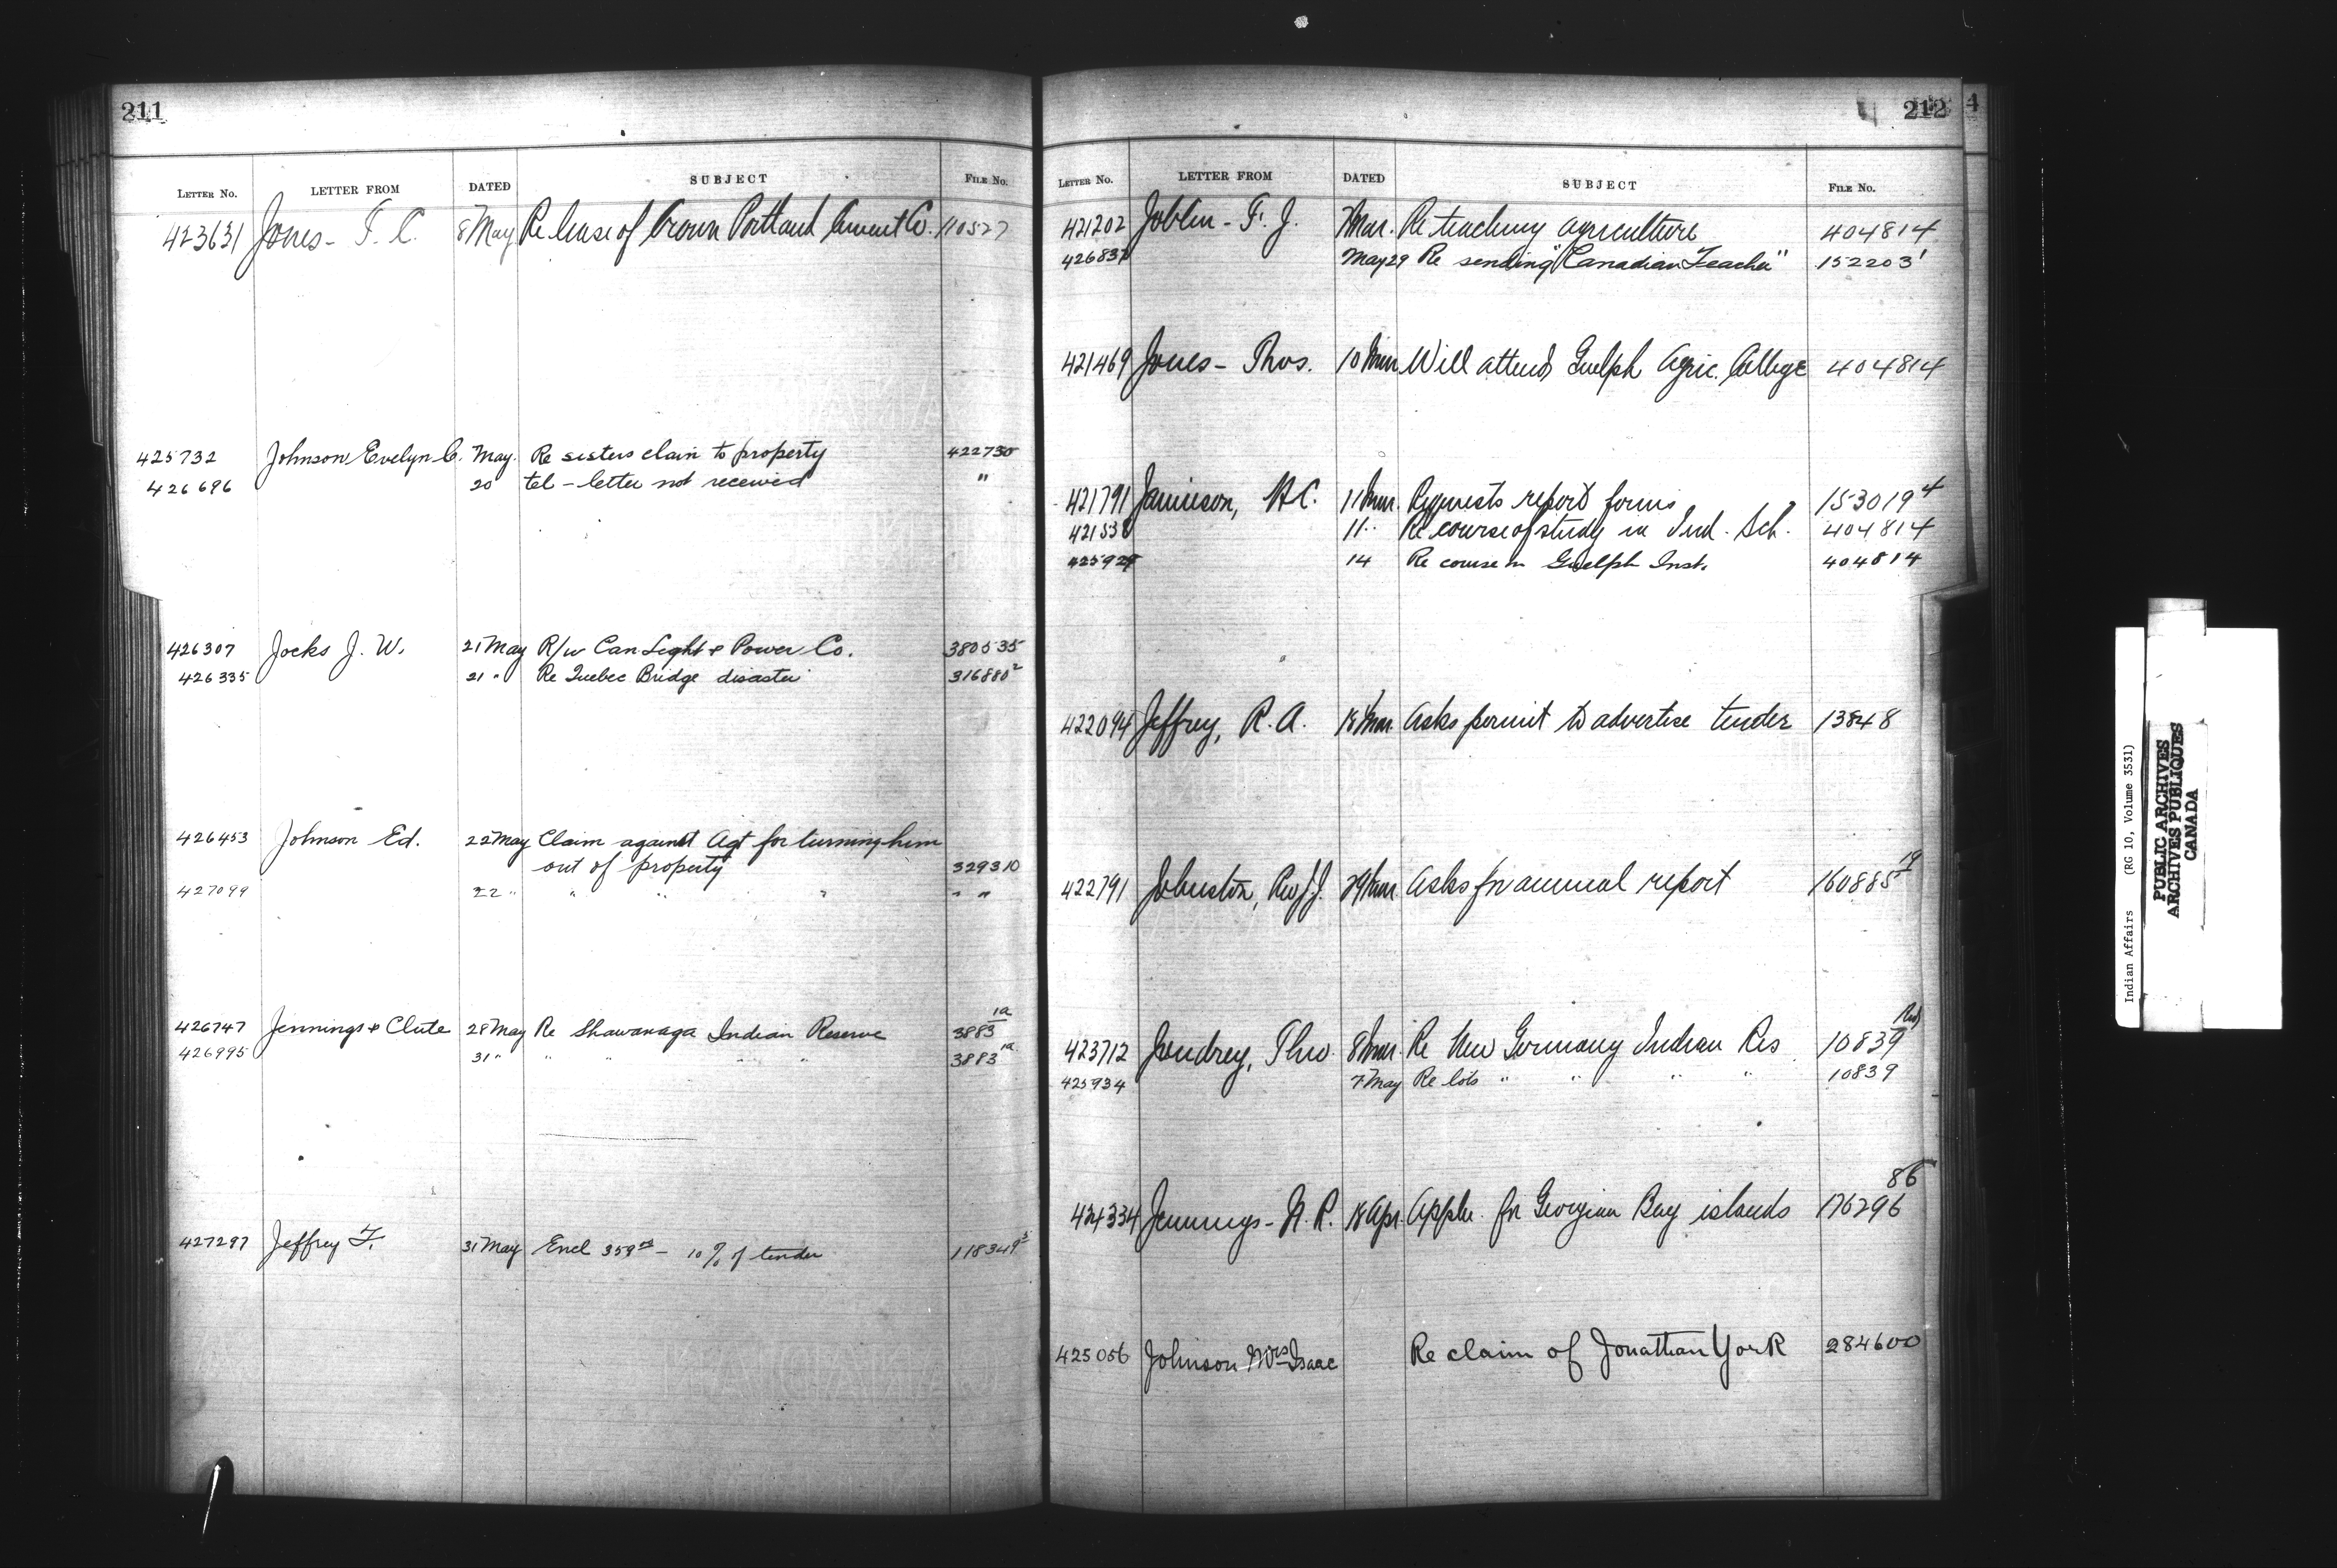 211
LETTER No. LETTER FROM DATED SUBJECT FILE No.
423631 Jones - F. C. 8 May Re lease of Crown Portland Cement Co. 110527
425732 Johnson Evelyn C. May. Re sisters claim to property 422730
426696 20 tel - letter not received "
426307 Jocks J. W. 21 May R/w Can Light & Power Co. 380535
426335 21 " Re Quebec Bridge disaster 316880²
426453 Johnson Ed. 22 May Claim against Agt for turning him
out of property 329310
427099 22 " " " " " "
426747 Jennings & Clute 28 May Re Shawanaga Indian Reserve 3883 1a
426995 31 " " " " " 3883 1a
427297 Jeffrey F. 31 May Encl - 10% of tender 118349
212
LETTER No. LETTER FROM DATED SUBJECT FILE No.
421202 Joblin - F. J. Mar. Re teaching agriculture 404814
May 29 Re sending "Canadian Teacher" 152203
421469 Jones - Thos. 10 Mar Will attend Guelph Agric. College 404814
421791 Jamieson, 11 Mar. Requests report forms 153019 4
11 " Re course of study in Ind. Sch. 404814
14 Re course in Guelph Inst. 404814
422094 Jeffrey, R. A. 18 Mar. Asks permit to advertise tender 13848
422791 Johnston, Rev J. J. 29 Mar Asks for annual report 160885 19
423712 Jendrey, 8 Re New Germany Indian Res 10839
425934 7 May Re lots " " " " 10839
424334 Jennings - N. R. 18 Apr. Applic. for Georgian Bay islands 176296 86
425056 Johnson Mrs Isaac Re claim of Jonathan York 284600
Indian Affairs (RG 10, Volume 3531)
PUBLIC ARCHIVES
ARCHIVES PUBLIQUES
CANADA